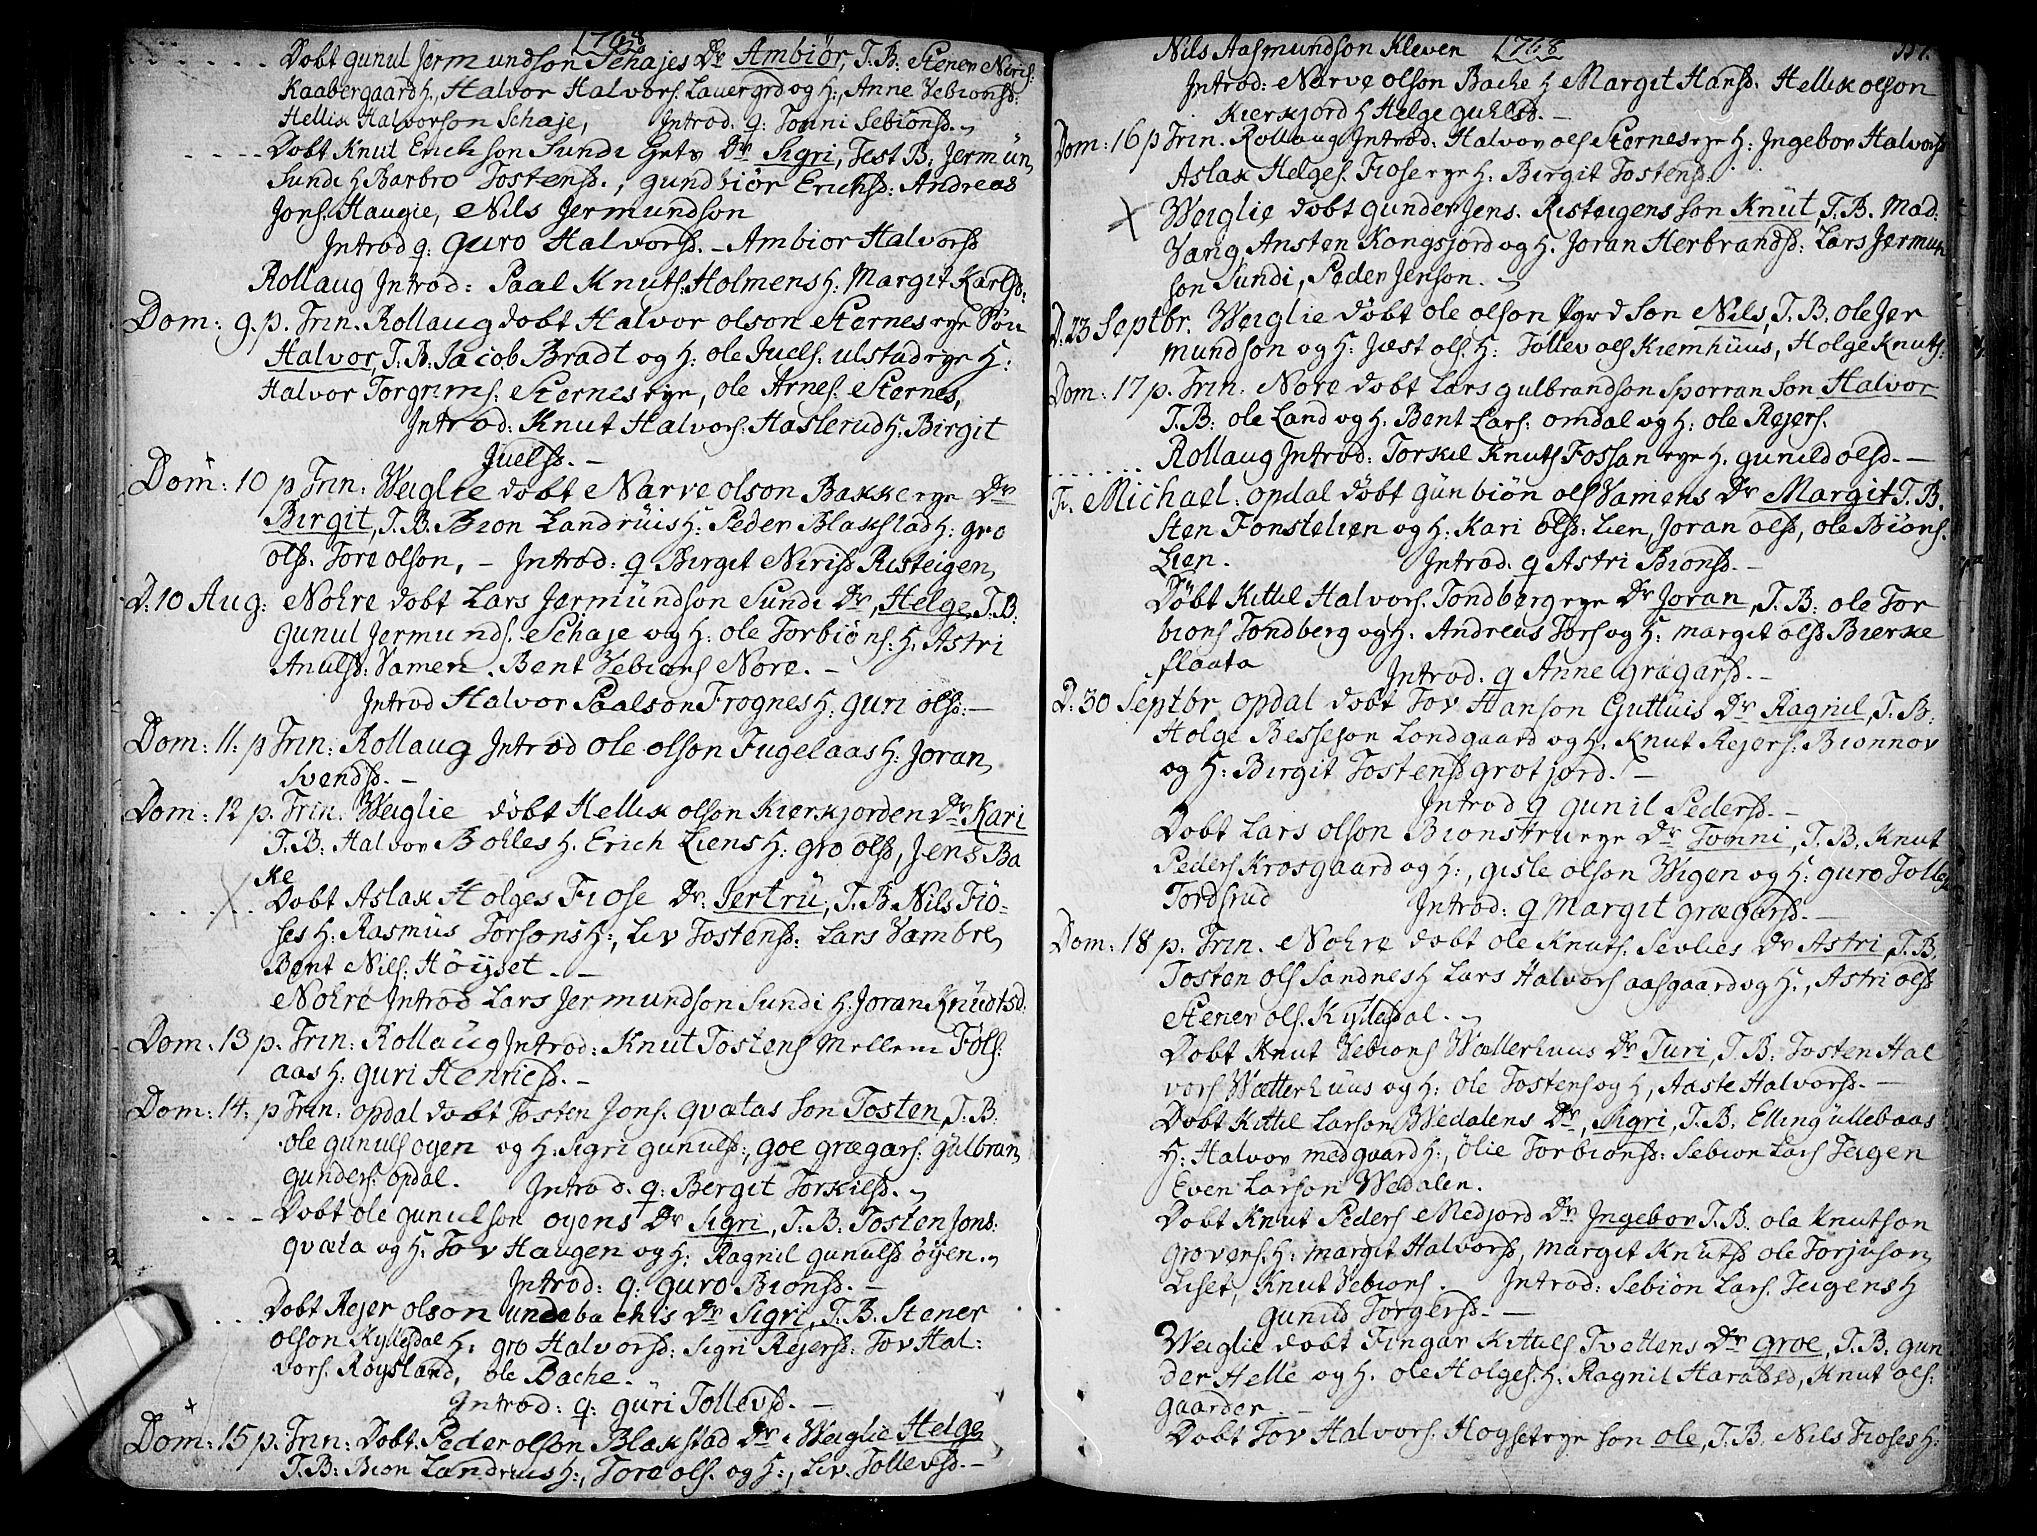 1768
Dobt gunul Jermundson Schajes Dr Ambiör, T.B: Stener Niris:
Kaabergaard H., Halvor Halvors. Lauergrd og H:, Anne Vebionsd:
Hellik Halvorson Schaje, Introd. q: Tonni Sebionsd.
Dobt Knut Erickson Sundi Dr Sigri, Test B: Jermün
Sundi H Barbro Tostensd., gundbiör Erichsd: Andreas
Jons. Haugie, Nils Jermundson
Introd q: guro Halvorsd. - Ambior Halvorsd
Rollaug Introd: Paal Knuts: Holmens H: Margit Karlsd:
Dom: 9. p. Trin. Rollaug dobt Halvor olson Sternes eye Sön
Halvor, T.B. Jacob Bradt og H: ole Juels. ulstad eye H:
Halvor Torgrims: Sternes eye, ole Arnes. Sternes,
Introd: Knut Halvors: Haslerud H. Birgit
Juelsd. -
Dom: 10 p Trin: Weiglie dobt Narve olson Bakke eye Dr
Birgit, T.B. Bion Landrüis H: Peder Blakstad H: gro
olsd. Tore olson, - Introd: q Birgit Nirisd Risteigen,
D: 10 Aug: Nohre dobt Lars Jermündson Sundi Dr, Helge, T.B:
gunul Jermunds. Schaje og H: ole Torbiöns: H. Astri
Anulsd: Vamen. Bent Vebions Nore. -
Introd Halvor Paalson Frognes H: guri olsd: -
Dom: 11: p Trin: Rollaug Introd ole olson Fugelaas H: Joran
Svendsd. -
Dom: 12 p. Trin. Weiglie döbt Hellik olson Kierkjorden Dr Kari
T.B: Halvor Bohles H. Erich Liens H: gro olsd, Jens Ba
ke
Dobt Aslak Holges Fiose Dr. Sertrü, T.B. Nils Fiö-
ses H: Rasmus Torsons H:, Liv Tostensd: Lars Vambre,
Bent Nils: Höyset. -
Nohre Introd Lars Jermundson Sundi H: Joran Knüdtsd:
Dom: 13 p. Trin: Rollaug Introd: Knut Tostens Mellem Föls:
aas H: guri Henriesd. -
Dom: 14: p Trin: opdal dobt Tosten Jons. qvætas son Tosten, T.B:
ole gunuls oyen og H: Sigri gunulsd:, goe grægars: gülbran,
gunders: opdal. Introd. q: Bergit Torkilsd.
Dobt ole gunulson oyens Dr Sigri, T.B: Tosten Jons:
qvæta og H: Tov Haugen og H: Ragnil gunulsd öyen.
Introd: q: guro Bionsd. -
Dobt Rejer olson undebachis Dr Sigri, T.B. Stener
olson Kyllesdal H: gro Halvorsd: Sigri Rejersd: Tov Hal:
vors. Röysland, ole Bache.
Introd: q: güri Tollevsd. -
Dom: 15 p. Trin: Dobt. Peder olson Blakstad Dr i Weiglie Helge
T.B: Bion Landruis H:, Tore ols. og H:, Liv. Tollevsd. -
Nils Aasmundson Kleven 1768
Introd: Narve olson Bache H Margit Hansd. Hellik olson
Kierkjord H Helge guhlsd. -
Dom: 16 p Trin. Rollaug Introd: Halvor ols Sternes eye H: Ingebor Halvorsd
Aslak Helges. Fiose eye H. Birgit Tostensd:
Weiglie dobt gunder Jens. Risteigens son Knüt, T.B. Mad:
Vang, Ansten Kongsjord og H. Joran Herbrandsd: Lars Jermun
son Sundi, Peder Jenson.
D: 23 Septbr. Weiglie döbt ole olson son Nils, T.B. ole Jer
mundson og H: Jæst ols. H: Tollev ols Kiemhüus, Holge Knuts:
Dom: 17 p. Trin. Nore dobt Lars gulbrandson Sporran Son Halvor
T.B: ole Land og H. Bent Lars: omdal og H: ole Rejers.
Rollaug Introd: Torkil Knuts Fossan eye H. gunild olsd. -
Fr. Michael: opdal döbt günbiön ols Vamens Dr Margit T.B.
Sten Fonstelien og H: Kari olsd: Lien, Joran olsd, ole Bions.
Lien. Introd: q Astri Bionsd. -
Döbt Kittil Halvors. Tondberg eye Dr Joran, T.B: ole Tor
bions Tondberg og H. Andreas Tors og H: margit olsd Bierke
flaata Introd. q Anne grægarsd. -
D: 30 Septbr opdal dobt Tov Hanson Guttuis Dr Ragnil, T.B:
Holge Besseson Londgaard og H. Knut Rejers. Bionnov
og H: Birgit Tostensd grotjord. -
Introd q gunil Pedersd. -
Dobt Lars olson Bionstru eye Dr Tonni, T.B. Knut
Peders Krosgaard og H:, gisle olson Wigen og H: guro Tolles
Tordsrud Introd: q Margit grægarsd. -
Dom: 18 p. Trin. Nohre dobt ole Knuts. Sevlies Dr Astri, T.B.
Tosten ols Sandnes H Lars Halvors aasgaard og H., Astri olsd
Stener ols. Kyllesdal.
Dobt Knut Vebions Wætterhuus Dr Turi, T.B: Tosten Hal
vors Wætterhüus og H: ole Tostens og H, Aaste Halvorsd. -
Dobt Kittil Larson Wedalens Dr, Sigri, T.B. Elling üllebaas
H: Halvor medgaard H:, ölie Torbionsd: Sebion Lars Teigen
Even Larson Wedalen.
Dobt Knut Peders Medjord Dr Ingebor T.B. ole Knutson
grovers. H: margit Halvorsd, margit Knutsd ole Torjuson,
Liset, Knut Vebions. Introd: Sebion Lars. Teigens H
gunild Torgersd. -
Weiglie dobt Fingar Kittils Tvettens Dr groe, T.B: gun
der Helle og H. ole Holges. H: Ragnil Haralsd, Knut ols:
gaarder. -
Dobt Tov Halvors. Hogset eye son ole, T.B. Nils Fioses H: